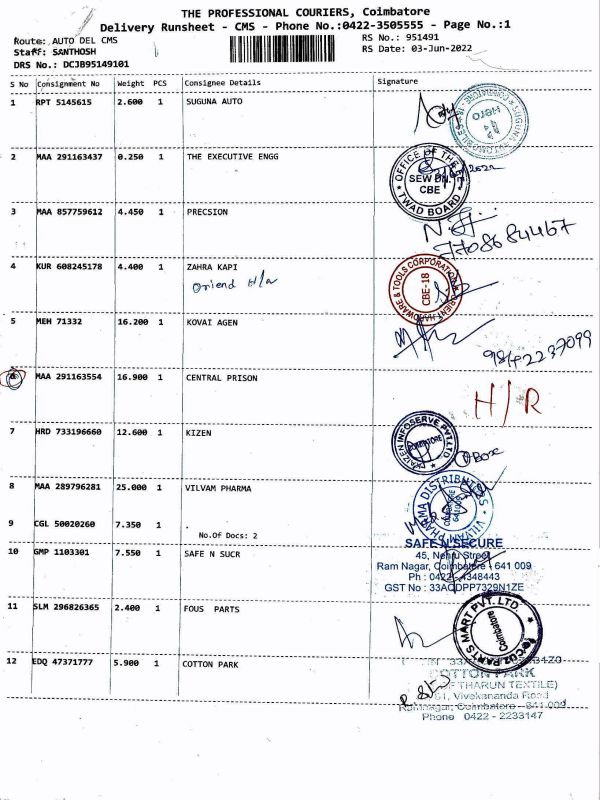 THE PROFESSIONAL COURIERS, Coimbatore
Delivery Runsheet - CMS - Phone No.:0422-3505555 - Page No.:1
Route: AUTO DEL CMS
RS No.: 951491
Staff: SANTHOSH
RS Date: 03-Jun-2022
DRS No.: DCJB95149101
S No Consignment No Weight PCS Consignee Details Signature
1 RPT 5145615 2.600 1 SUGUNA AUTO
Hero
2 MAA 291163437 0.250 1 THE EXECUTIVE ENGG
OFFICE OF THE
SEW DN.
CBE
TWAD BOARD
3 MAA 857759612 4.450 1 PRECSION
7708684467
4 KUR 608245178 4.400 1 ZAHRA KAPI
Oriend H/w
ORIENT HARDWARE & TOOLS CORPORATION
CBE-18
5 MEH 71332 16.200 1 KOVAI AGEN
9842237099
6 MAA 291163554 16.900 1 CENTRAL PRISON
H/R
7 HRD 733196660 12.600 1 KIZEN
KAIZEN INFOSERVE PVT.LTD
1 Box
8 MAA 289796281 25.000 1 VILVAM PHARMA
VILVAM PHARMA DISTRIBUTORS
COIMBATORE
641009
9 CGL 50020260 7.350 1 .
No.Of Docs: 2
10 GMP 1103301 7.550 1 SAFE N SUCR
SAFE N SECURE
45, Nehru Street
Ram Nagar, Coimbatore - 641 009
Ph : 0422 - 4348443
GST No : 33AQDPP7329N1ZE
11 SLM 296826365 2.400 1 FOUS PARTS
PARTS MART PVT. LTD.
Coimbatore
12 EDQ 47371777 5.900 1 COTTON PARK
COTTON PARK
OF THARUN TEXTILE)
Vivekananda Road
Ramnagar, Coimbatore - 641 009
Phone 0422 - 2233147